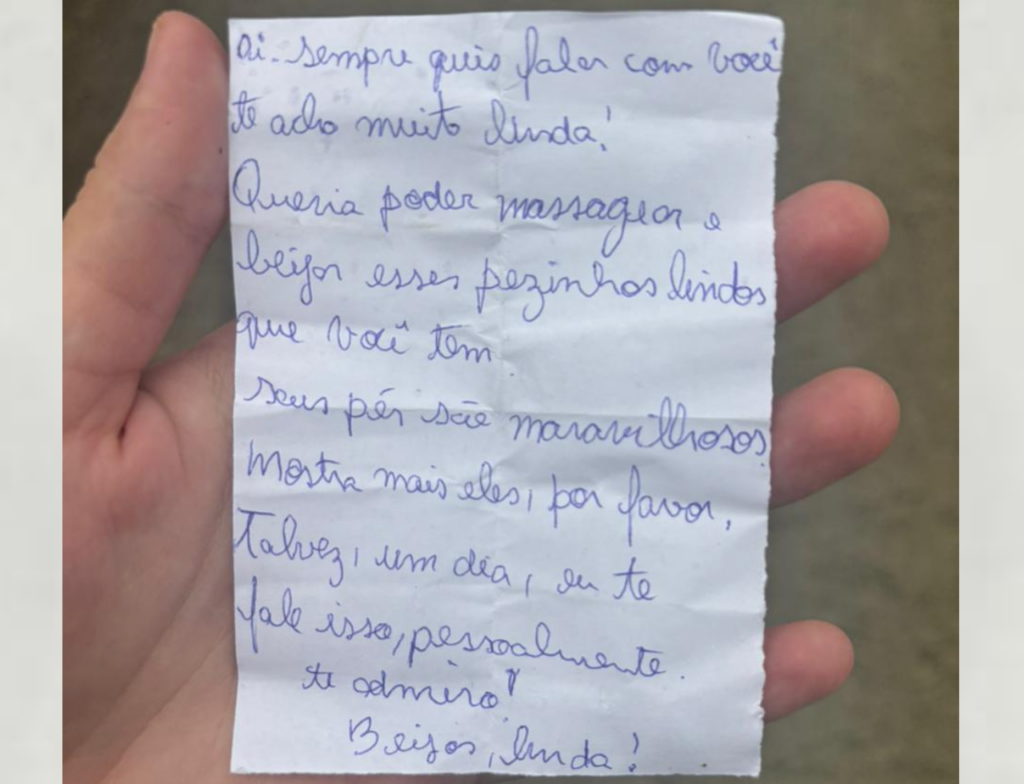 oi. sempre quis falar com você
te acho muito linda!
Queria poder massagear e
beijar esses pezinhos lindos
que você tem
seus pés são maravilhosos.
Mostra mais eles, por favor,
Talvez, um dia, eu te
fale isso, pessoalmente.
te admiro!
Beijos, linda!